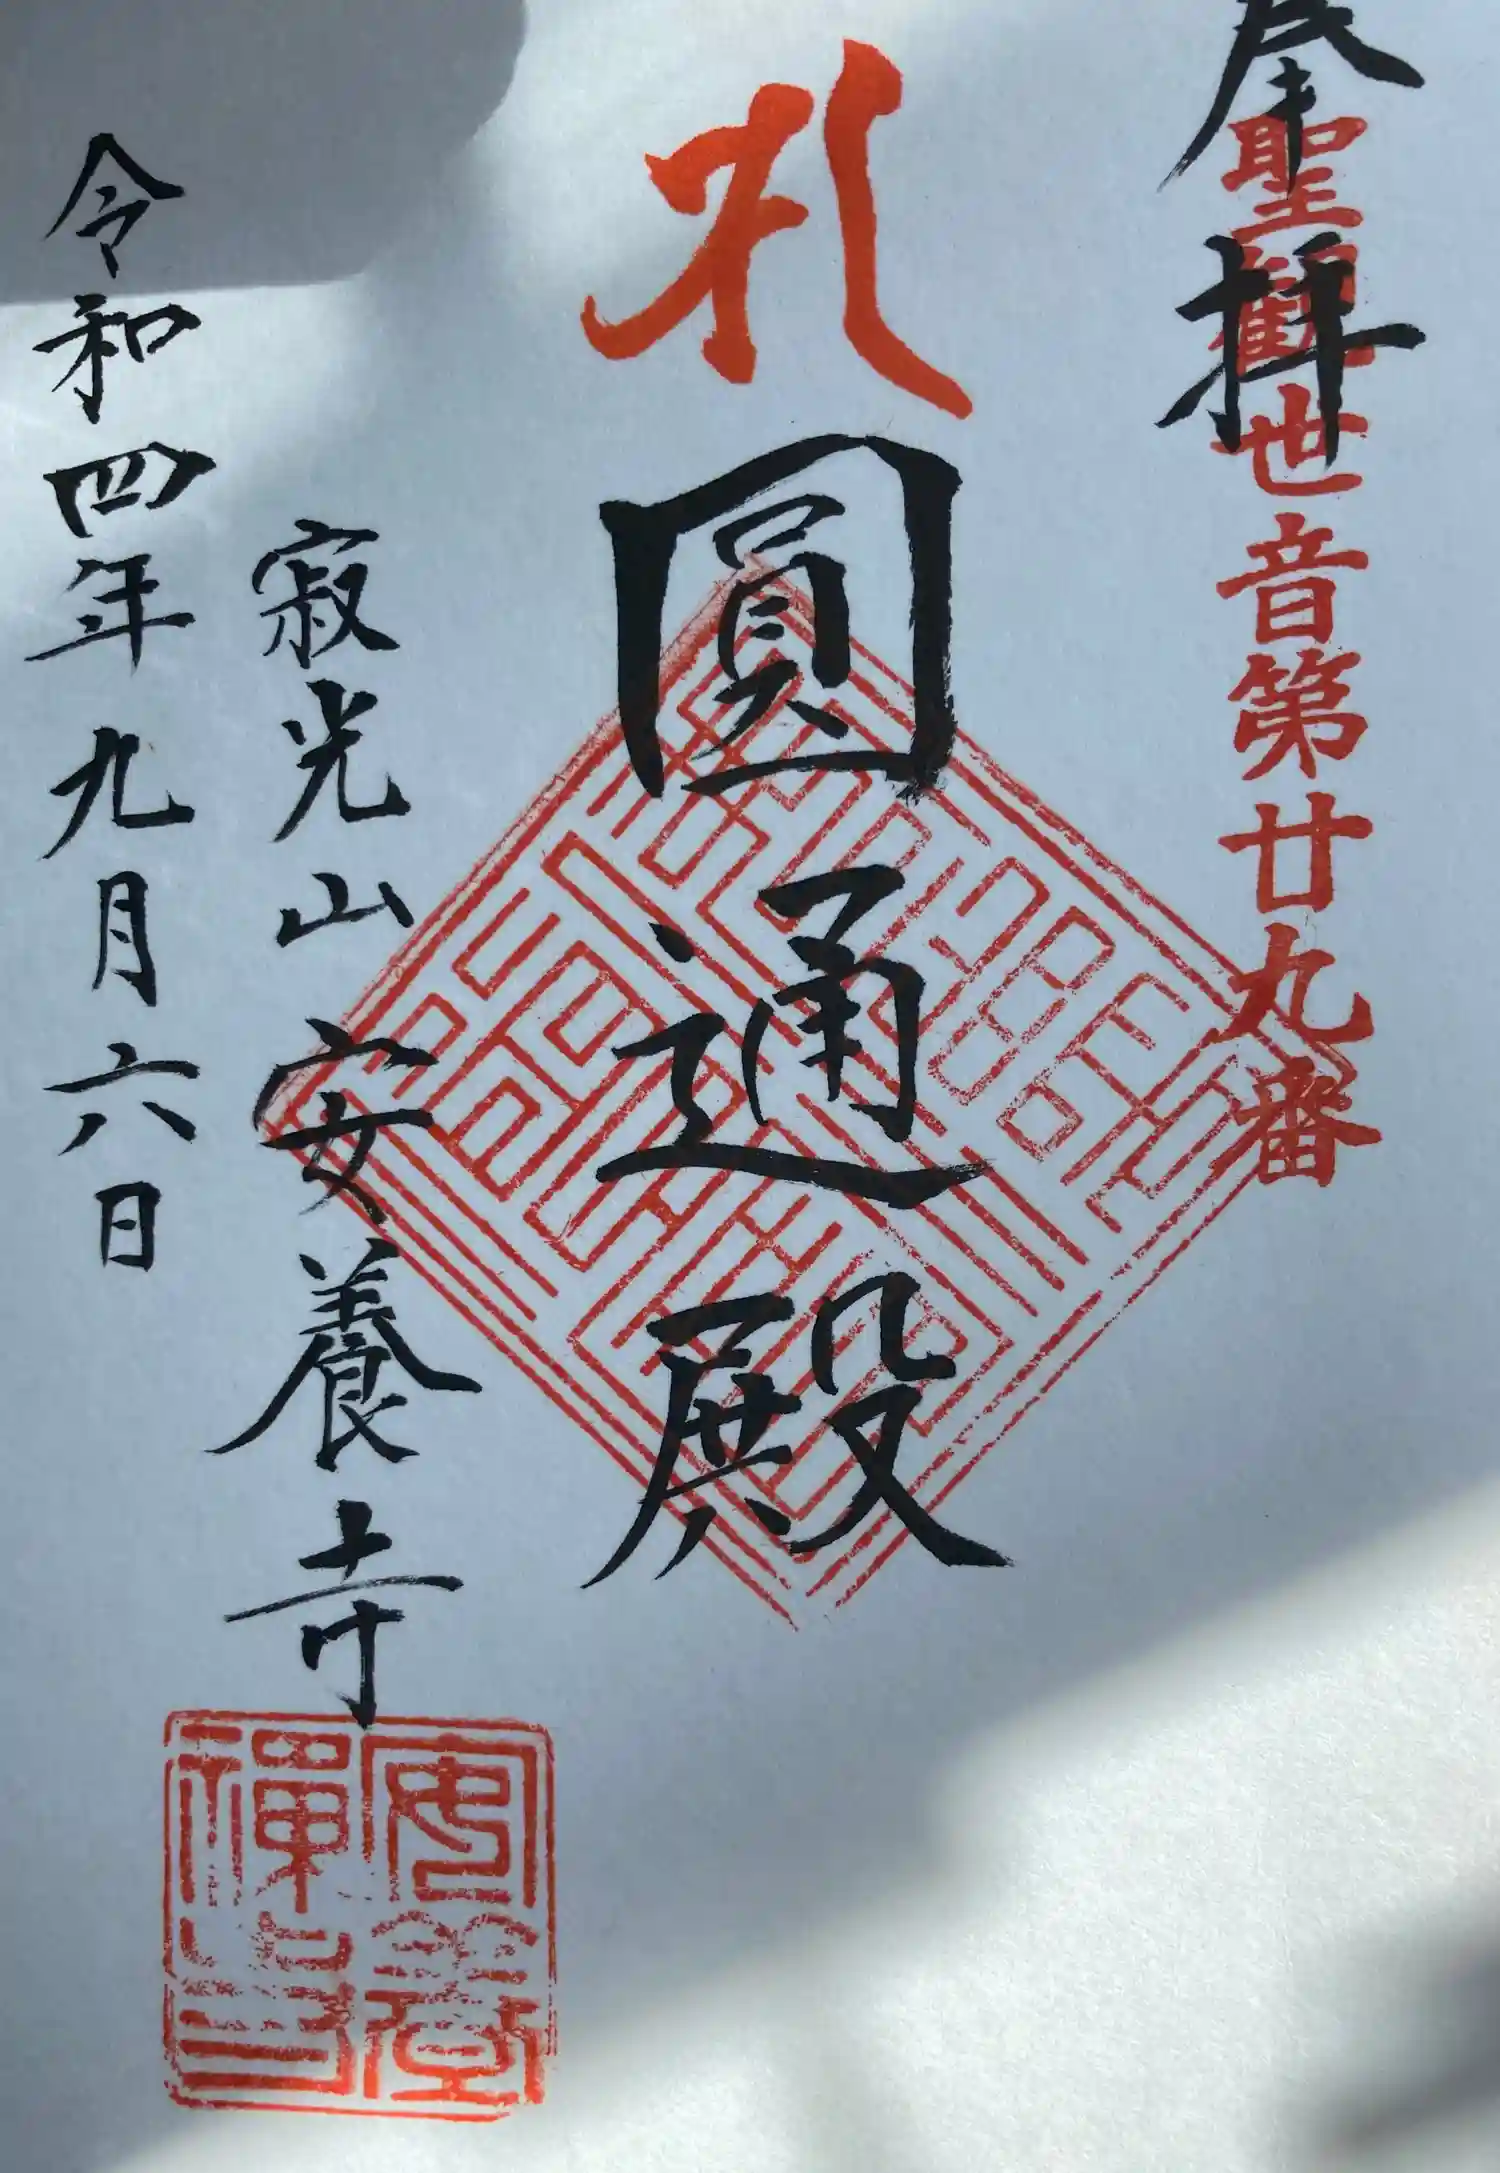 奉拝
聖観世音第廿九番
圓通殿
寂光山安養寺
令和四年九月六日
安養禅寺